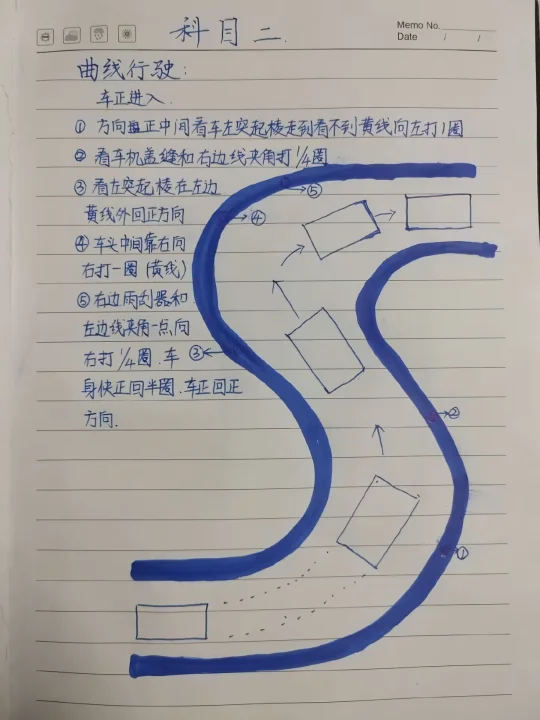 Memo No.
Date / /
科目二.
曲线行驶:
车正进入.
① 方向盘正中间看车左突起棱走到看不到黄线向左打1圈
② 看车机盖缝和右边线夹角打1/4圈
③ 看左突起棱在左边
黄线外回正方向
④ 车头中间靠右向
右打一圈(黄线)
⑤ 右边雨刮器和
左边线夹角一点向
右打1/4圈.车
身快正回半圈.车正回正
方向.
⑤
④
③
②
①